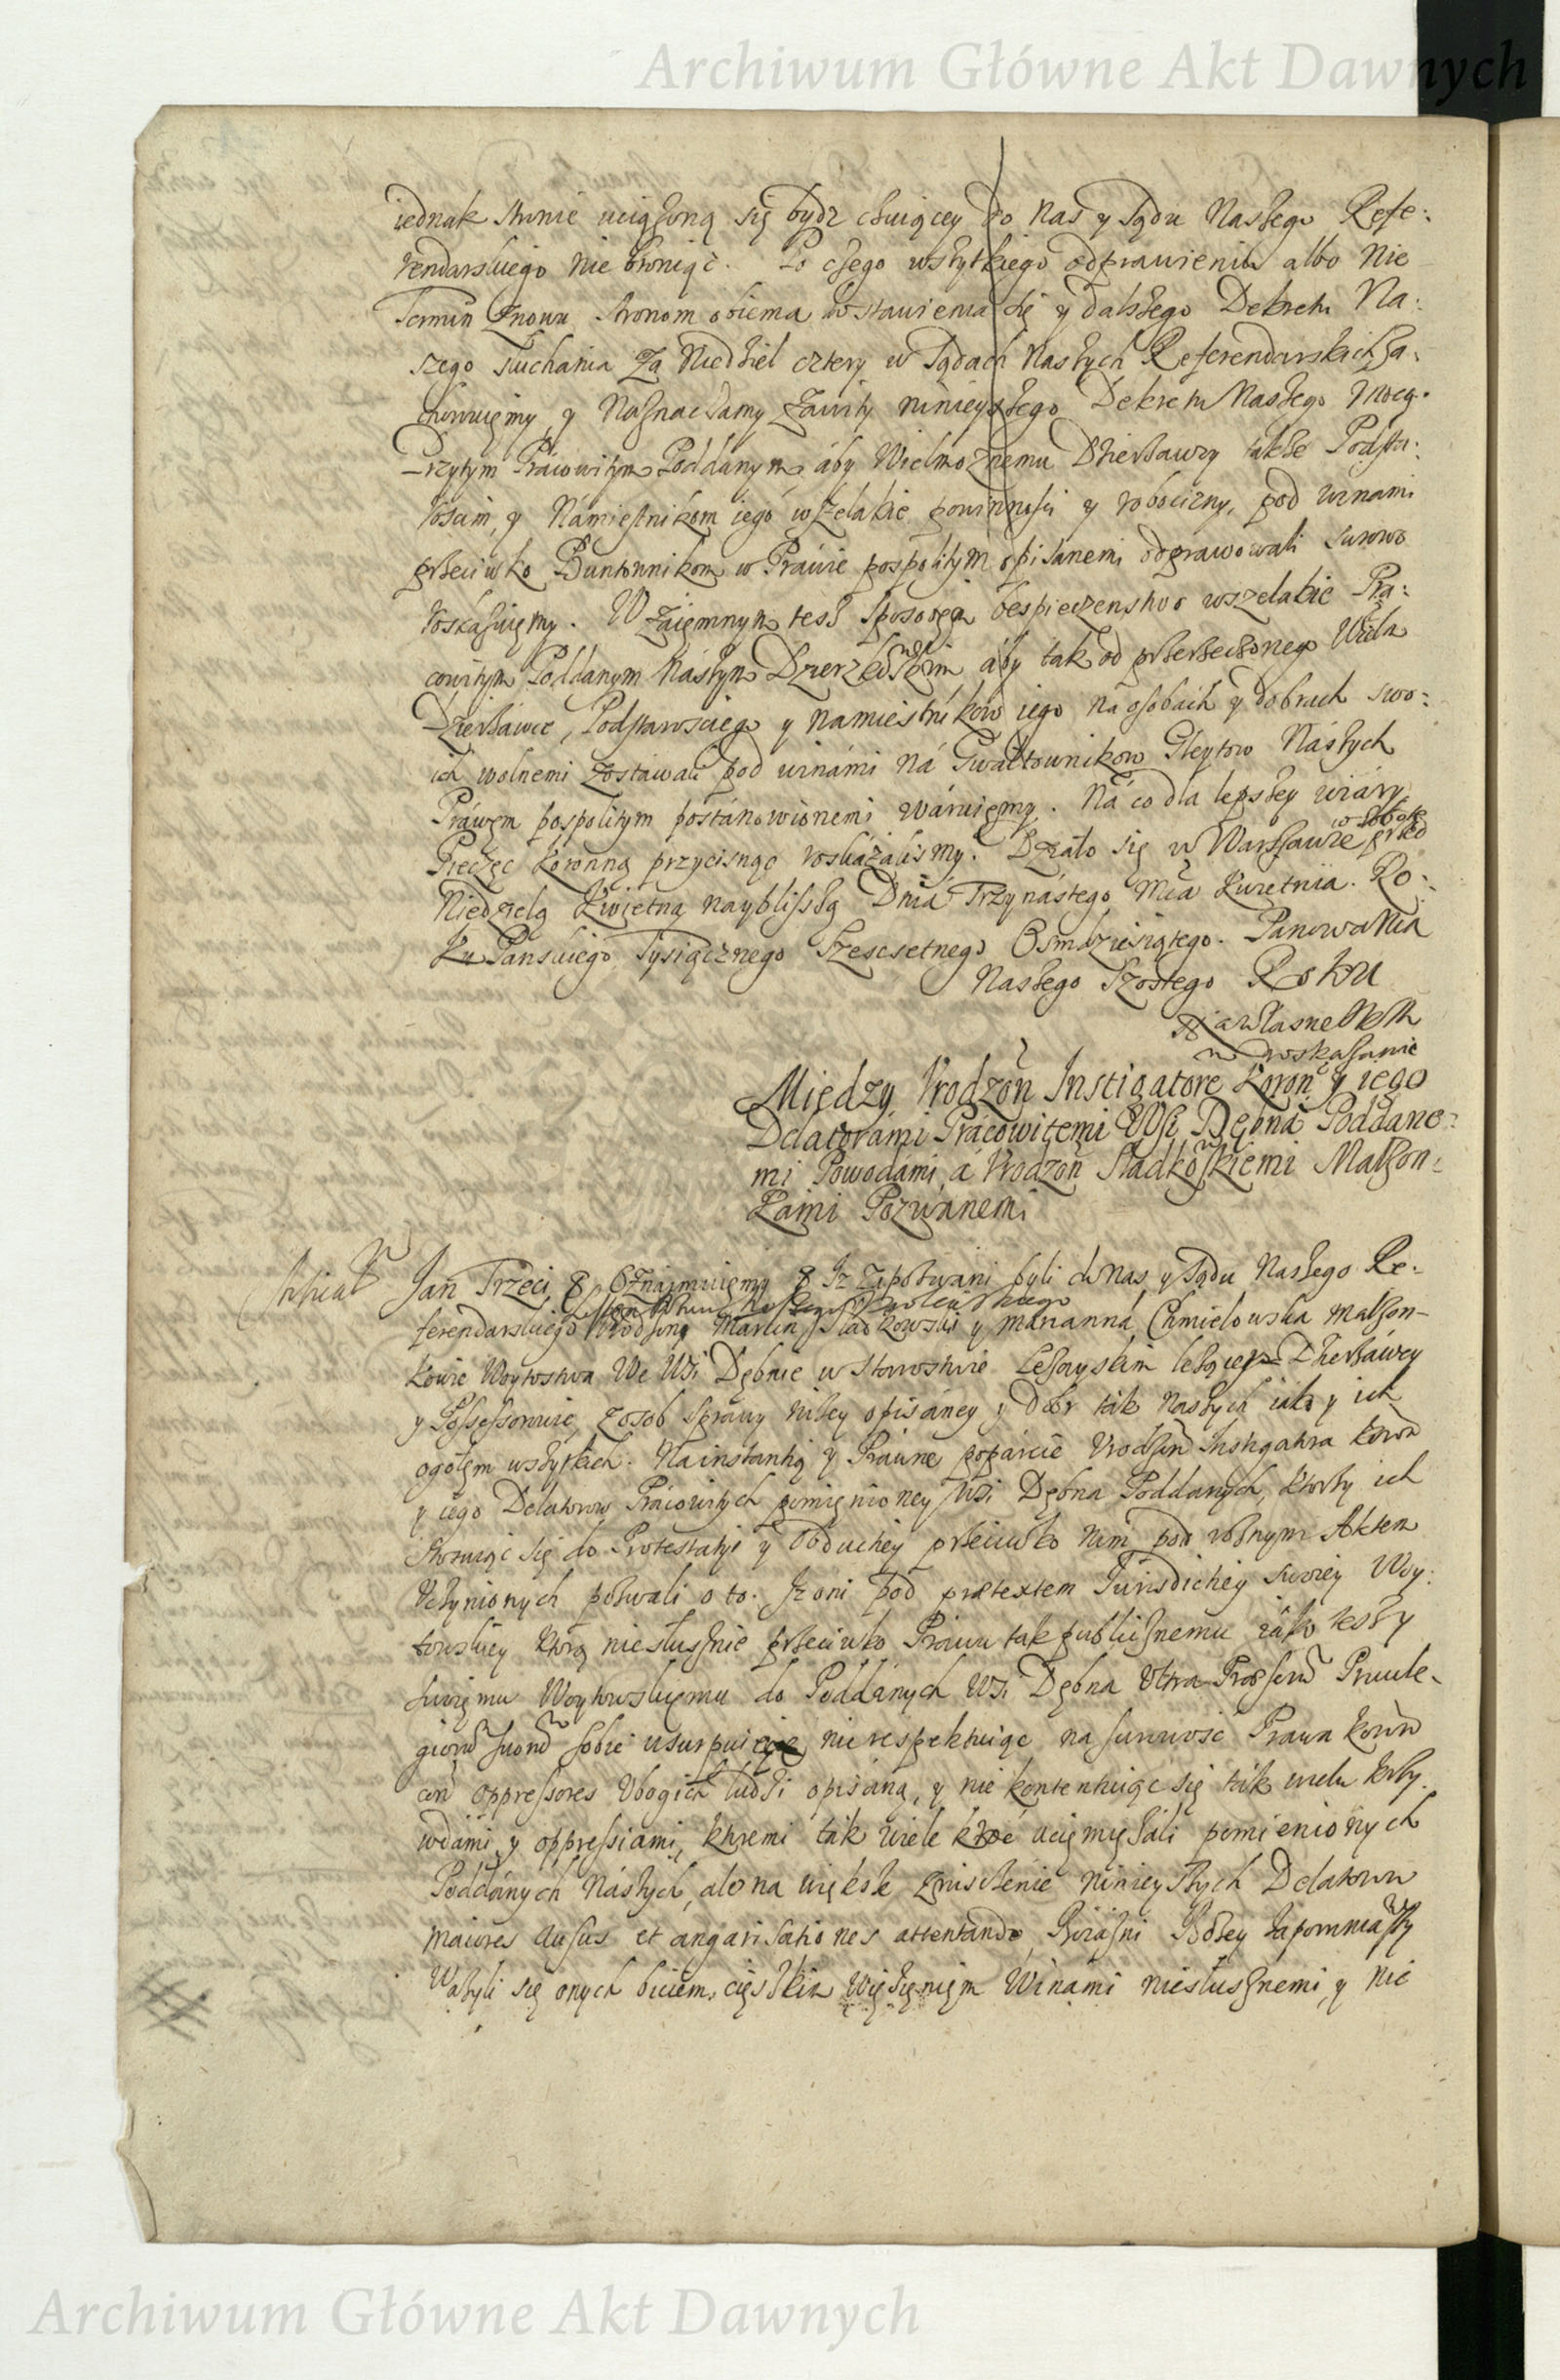 Archiwum Główne Akt Dawnych
iednak stronie uciążoną się bydz chcącey do Nas y Sądu Naszego Refe:
rendarskiego nie broniąc. Po czego wszytkiego odprawieniu albo nie
Termin znowu stronom obiema do stawienia się y dalszego Dekretu Na:
szego słuchania za Niedziel cztery w Sądach Naszych Referendarskich za:
chowuięmy y Naznaczamy zawity ninieyszego Dekretu Naszego mocą.
Przytym Pracowitym Poddanym, aby Wielmożnemu Dzierzawcy także Podsta:
roscim, y Namięstnikom iego wszelakie powinnosci y robocizny, pod winami
przeciwko Buntownikom w Prawie pospolitym opisanemi odprawowali surowo
roskazuięmy. Wzaięmnym tesz sposobęm bespieczenstwo wszelakie Pra:
cowitym Poddanym Naszym aby tak od przerzeczonego Wiela
Dzierzawce, Podstarosciego y namiestników iego na osobach y dobrach swo:
ich wolnemi zostawali pod winami na Gwałtownikow Gleytow Naszych
Prawęm pospolitym postanowionemi waruięmy. Na co dla lepszey wiary
Pieczęc koronną przycisnąc roskazalismy. Działo się w Warszawie w Sobotę przed
Niedzielą Kwietną naybliszszą Dnia Trzynastego Mca Kwietnia. Ro:
ku Panskiego Tysiącznego Szescsetnego Osmdziesiątego. Panowania
Naszego Szostego Roku
Na własne
roskazanie
Między Vrodzon Instigatorę Koron y iego
Delatorami Pracowitęmi Wsi Dębna Poddane:
mi Powodami, a Vrodzon Sladkowskiemi Małżon:
kami Pozwanemi
Jan Trzeci & Oznaymuięmy & Iz Zapozwani byli do Nas y Sądu Naszego Re:
ferendarskiego Vrodzoną Marcin Sladkowski y Marianna Chmielowska małżon-
kowie Woytostwa We Wsi Dębnie w Starostwie Leżayskim leżącego Dzierzawcy
y Possessorowie, z osob sprawy niżey opisaney y dobr tak Naszych iako y ich
ogołęm wszytkich. Na instantią y Prawne poparcie Vrodzon Instigatora Koron
y iego Delatorow Pracowitych pomięnioney Wsi Dębna Poddanych, ktorzy ich
stosuiąc się do Protestatyi y Obductiey przeciwko nim pod roznym Aktem
Vczynionych pozwali o to. Iz oni pod prætextem Iurisdictiey swoiey Woy:
towskiey ktorą niesłusznie przeciwko Prawu tak publicznemu iako tesz y
swoięmu Woytowskięmu do Poddanych Wsi Dębna Vltra Præscrip Privile-
giorum suorum sobie usurpuią nierespektuiąc na surowosc Prawa Koron
con oppressores Vbogich ludzi opisaną, y nie kontentuiąc się tak wielu krzy:
wdami, y oppressiami, ktoremi tak wiele uciemięzali pomienionych
Poddanych Naszych, ale na większe zniszczenie ninieyszych Delatorow
maiores ausus et angarisationes attentando Boiazni Bozey zapomniawszy
Wazyli się onych biciem, ciężkim Więzięnięm Winami niesłusznemi, y nie
Archiwum Główne Akt Dawnych